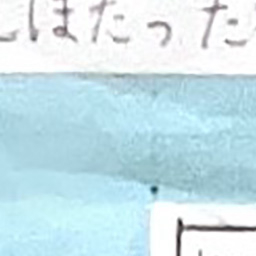 はたった